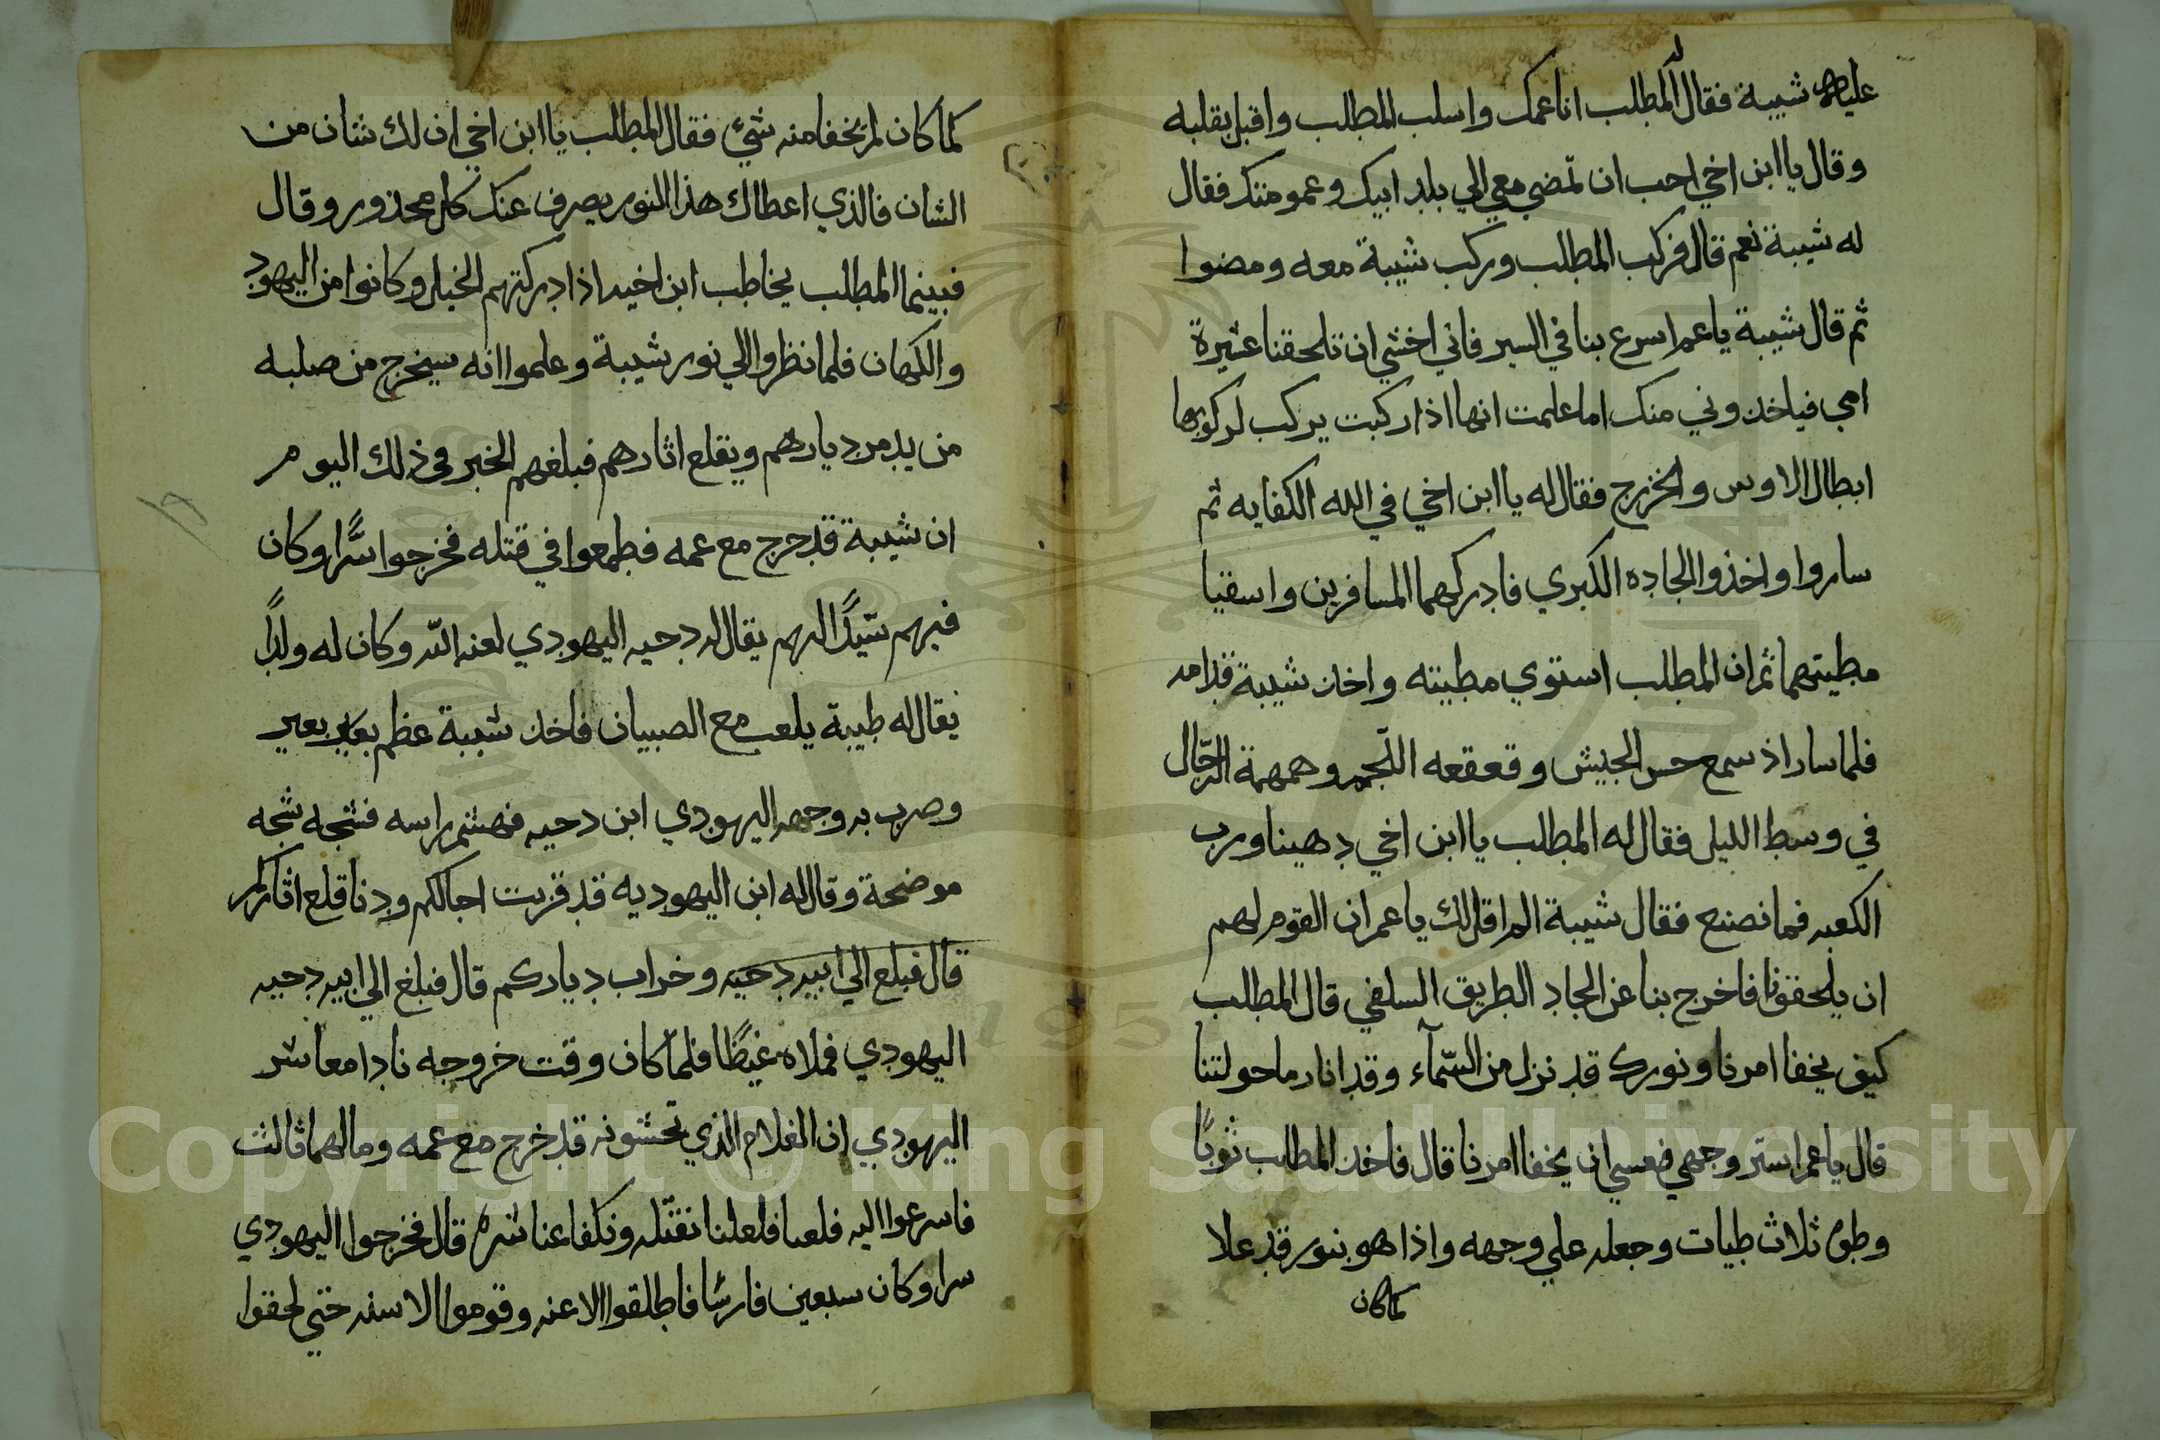 عليهم شيبة فقال له المطلب انا عمك واسلب المطلب واقبل يقلبه
وقال يا ابن اخي احب ان تمضي معي الي بلد ابيك وعمومتك فقال
له شيبة نعم قال فركب المطلب وركب شيبة معه ومضوا
ثم قال شيبة يا عم اسرع بنا في السير فاني اخشي ان تلحقنا عشيرة
امي فياخذوني منك اما علمت انها اذا ركبت يركب لركوبها
ابطال الاوس والخزرج فقال له يا ابن اخي في الله الكفايه ثم
ساروا واخذوا الجاده الكبري فادركهما المسافرين واسقيا
مطيتهما ثم ان المطلب استوي مطيته واخذ شيبة قدامه
فلما سار اذ سمع حس الجيش وقعقعه اللّجم وهمهمة الرّجال
في وسط الليل فقال له المطلب يا ابن اخي دهينا ورب
الكعبه فما نصنع فقال شيبة الم اقل لك يا عم ان القوم لهم
ان يلحقونا فاخرج بنا عن الجاد الطريق السلفي قال المطلب
كيف يخفا امرنا ونورك قد نزل من السّمآء وقد انار ما حولتنا
قال يا عم استر وجهي فعسي ان يخفا امرنا قال فاخذ المطلب ثوبًا
وطوه ثلاث طيات وجعله علي وجهه واذا هو بنور قد علا
كما كان
كما كان لم يخفا منه شيئ فقال المطلب يا ابن اخي ان لك شان من
الشان فالذي اعطاك هذا النور يصرف عنك كل محذور وقال
فبينما المطلب يخاطب ابن اخيه اذا دركتهم الخيل وكانوا من اليهود
والكهان فلما نظروا الي نور شيبة وعلموا انه سيخرج من صلبه
من يدمر ديارهم ويقلع اثارهم فبلغهم الخبر في ذلك اليوم
ان شيبة قد خرج مع عمه فطمعوا في قتله فخرجوا سّرا وكان
فيهم سيّدًا لهم يقال له دحيه اليهودي لعنه اللّه وكان له ولدًا
يقال له طيبة يلعب مع الصبيان فاخذ شيبة عظم بعير بعير
وصرب به وجهه اليهودي ابن دحيه فهشم راسه فشجه شجه
موضحة وقال له ابن اليهوديه قد قربت اجالكم ودنا قلع اثاركم
قال فبلع الي ابيه دحيه وخراب دياركم قال فبلغ الي ابيه دحيه
اليهودي فملاه غيظًا فلما كان وقت خروجه نادا معاشر
اليهودي ان الغلام الذي تخشونه قد خرج مع عمه وما لهما ثالث
فاسرعوا اليه فلعنا فلعلنا نقتله ونكفا عنا شره قال فخرجوا اليهودي
سرا وكان سبعين فارسًا فاطلقوا الاعنه وقوموا الاسنه حتي لحقوا